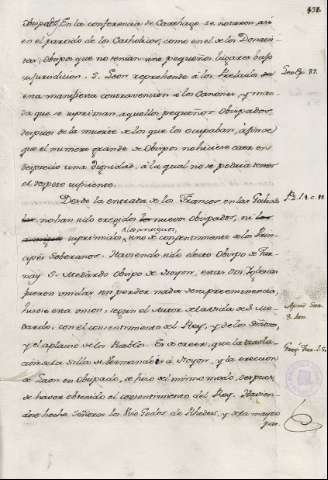 Obispados. En la conferencia de Carthago se notaron asi
en el partido de los Catholicos, como en el de los Donatis-
tas, Obispos que no tenian sino pequeños lugares bajo
su jurisdiccion. S. Leon reprehende á los Prelados de
esta manifiesta contravencion á los Canones, y man-
da que se supriman aquellos pequeños Obispados,
despues de la muerte de los que los ocupaban, afin de
que el numero grande de Obispos no hiciese caer en
desprecio una dignidad, á la qual no se podia tener
el respeto suficiente.
Desde la entrada de los Francos en las Galias
no han sido erigidos nuevos Obispados, ni
suprimidos los antiguos, sino de consentimiento de los Prin-
cipes Soberanos. Haviendo sido electo Obispo de Tur-
nay S. Medardo Obispo de Noyon, estas dos Iglesias
fueron unidas sin perder nada de su preeminencia,
hizose esta union, segun el Autor de la vida de S. Me-
dardo, con el consentimiento del Rey, y de los Señores,
y el aplauso de los Pueblos. Es de creer, que la
de la Silla de Vermandois á Noyon, y la ereccion
de Laon en Obispado, se hizo del mismo modo, despues
de haver obtenido el consentimiento del Rey. Havien-
dose hecho Señores los Viso Godos de Rhodes, y de la mayor
par-